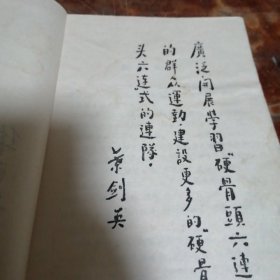 廣泛開展學習“硬骨頭六連”
的群众運動，建設更多的“硬骨
头六连”式的連隊。
葉劍英